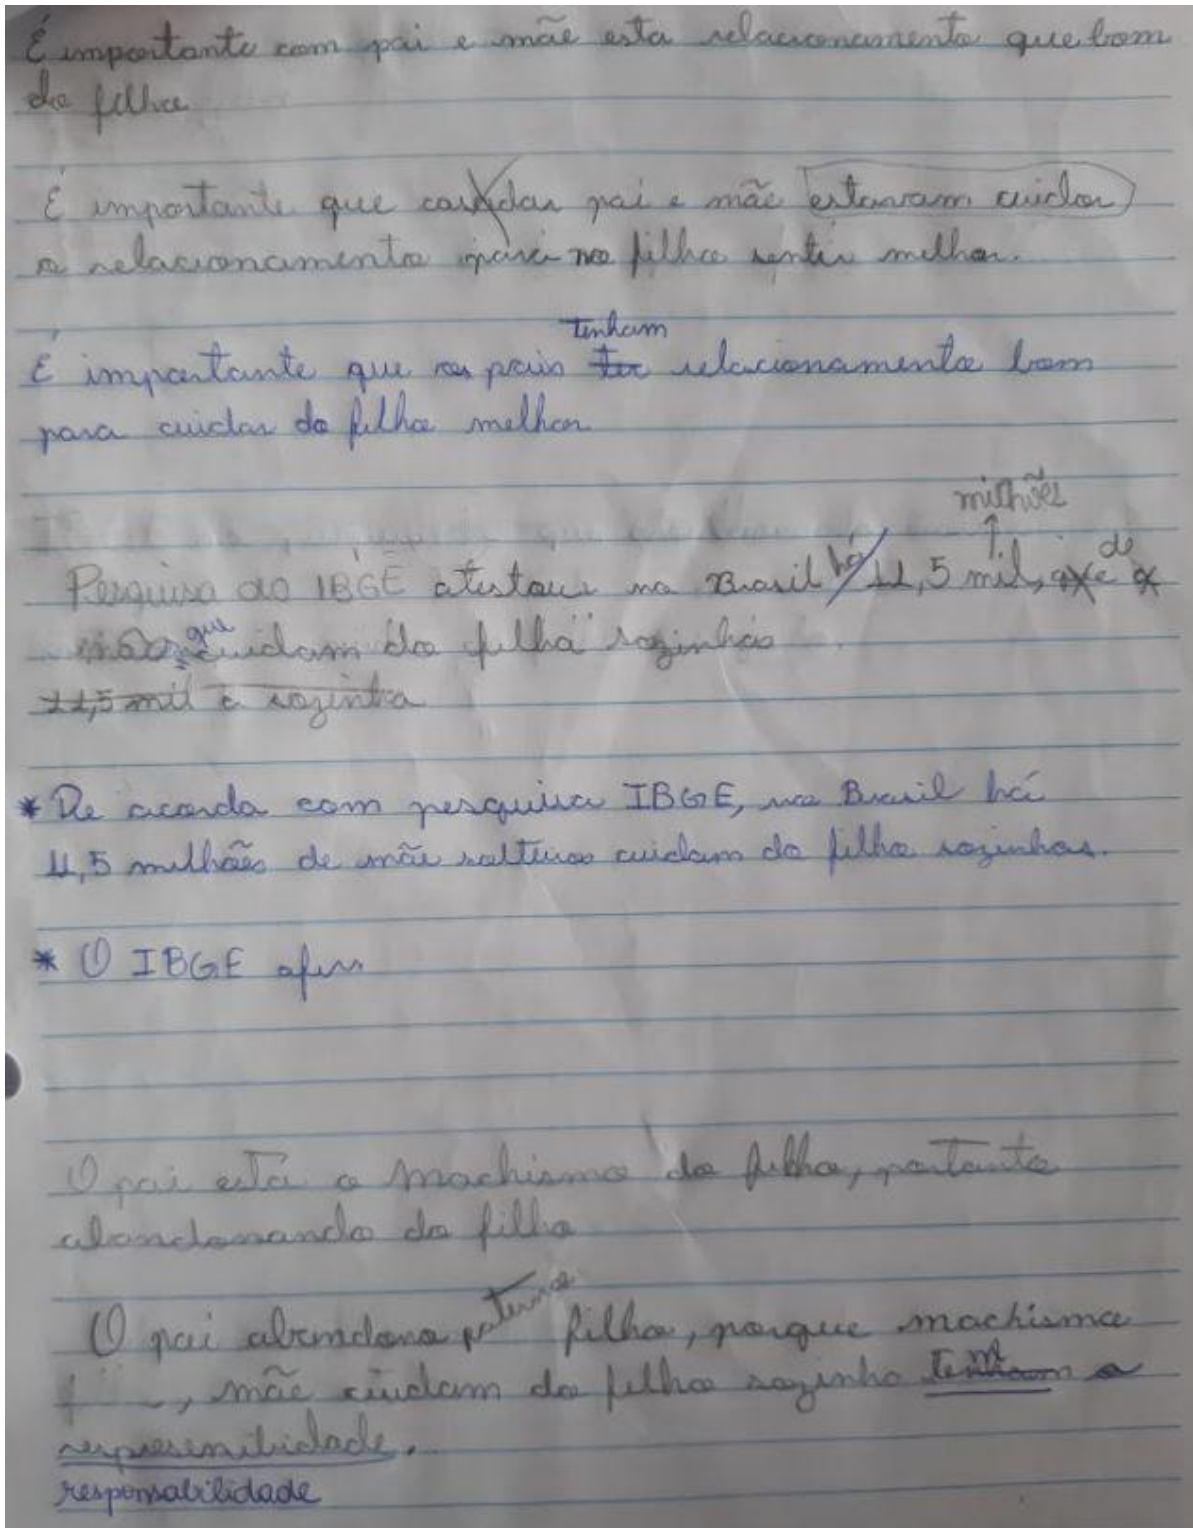 É importante com pai e mãe esta relacionamento que bom
do filho
É importante que pai e mãe estavam cuidar
o relacionamento para no filho sentir melhor.
tenham
É importante que os pais ter relacionamento bom
para cuidar do filho melhor
milhões
Pesquisa do IBGE atestou no Brasil há 11,5 mil, de
mão que cuidam do filho sozinhas
11,5 mil e sozinha
* De acordo com pesquisa IBGE, no Brasil há
11,5 milhões de mãe solteiras cuidam do filho sozinhas.
* O IBGE afirm
O pai está o machismo do filho, portanto
abandonando do filho
O pai abandona paterno filho, porque machismo
, mãe cuidam do filho sozinho tem a
responsabilidade